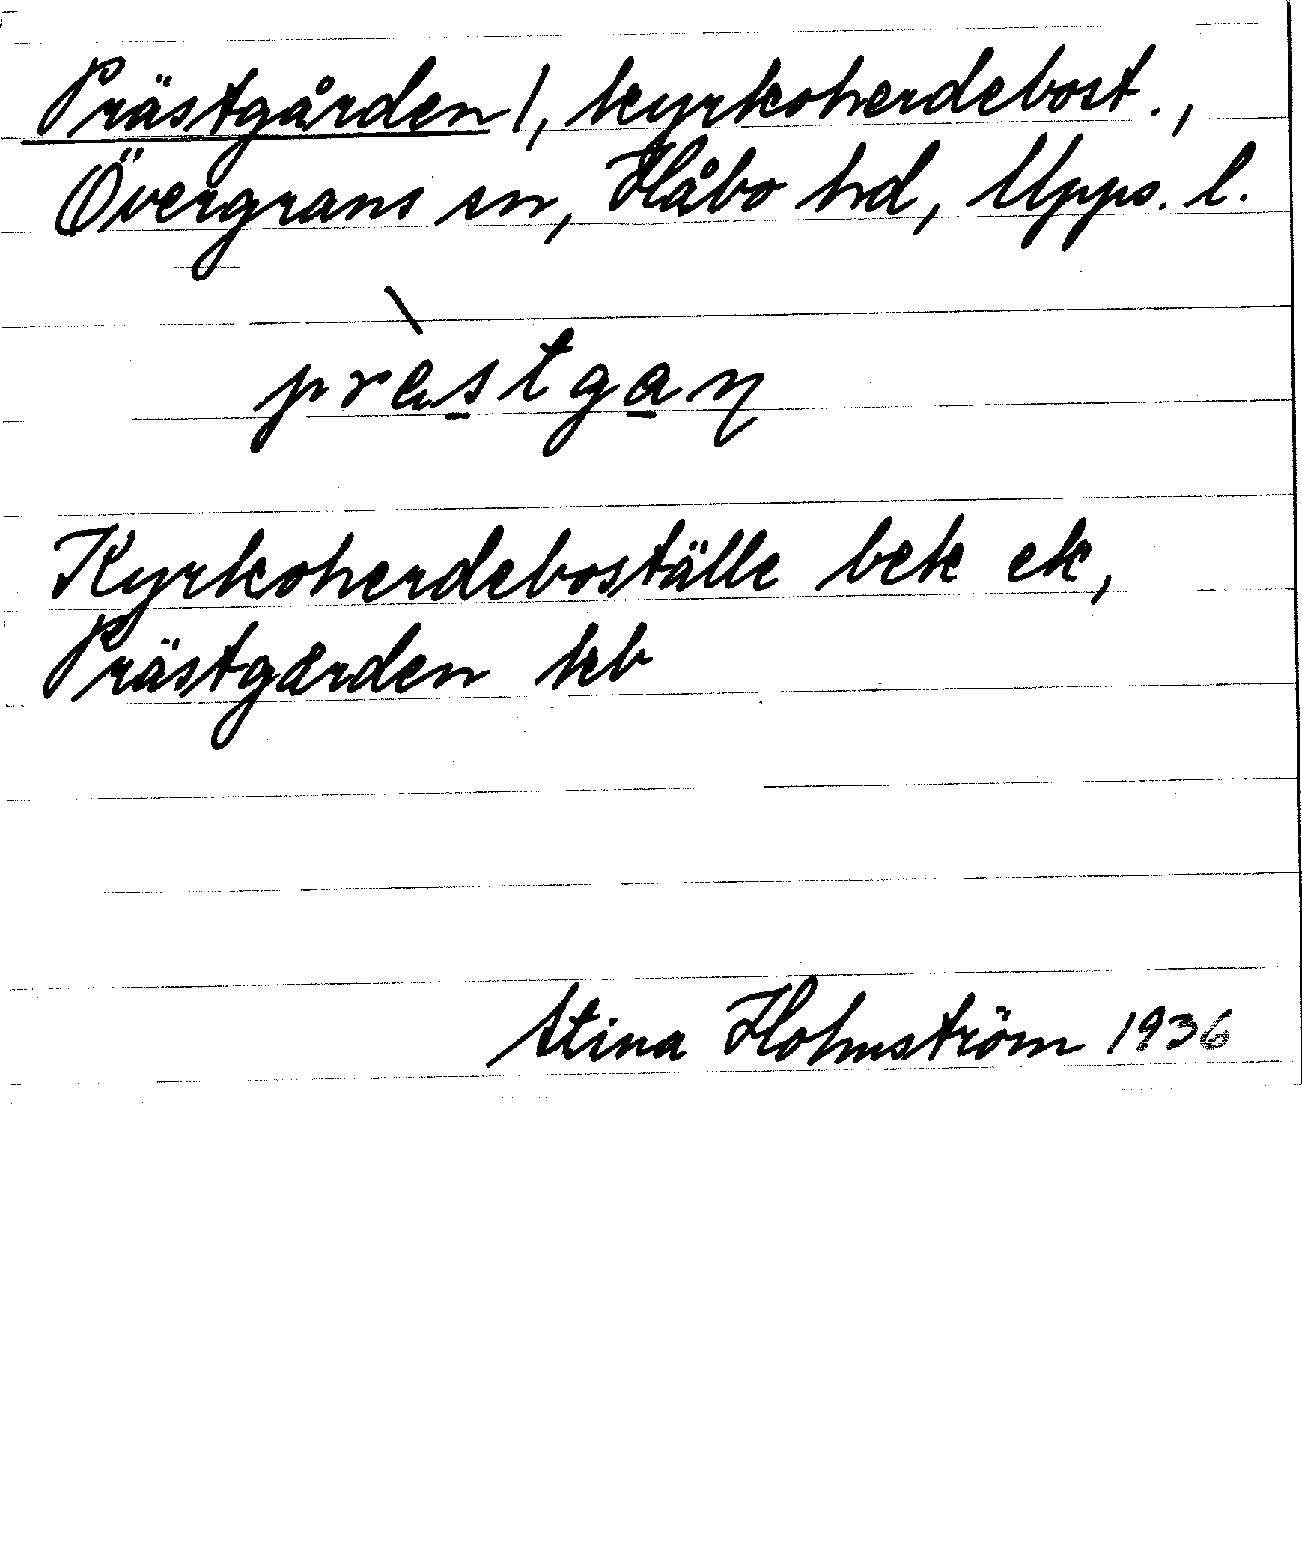 Prästgården 1, kyrkoherdebost.,
Övergrans sn, Håbo hd, Upps. l.
Kyrkoherdeboställe bek ek,
Prästgården kb
Stina Holmström 1936